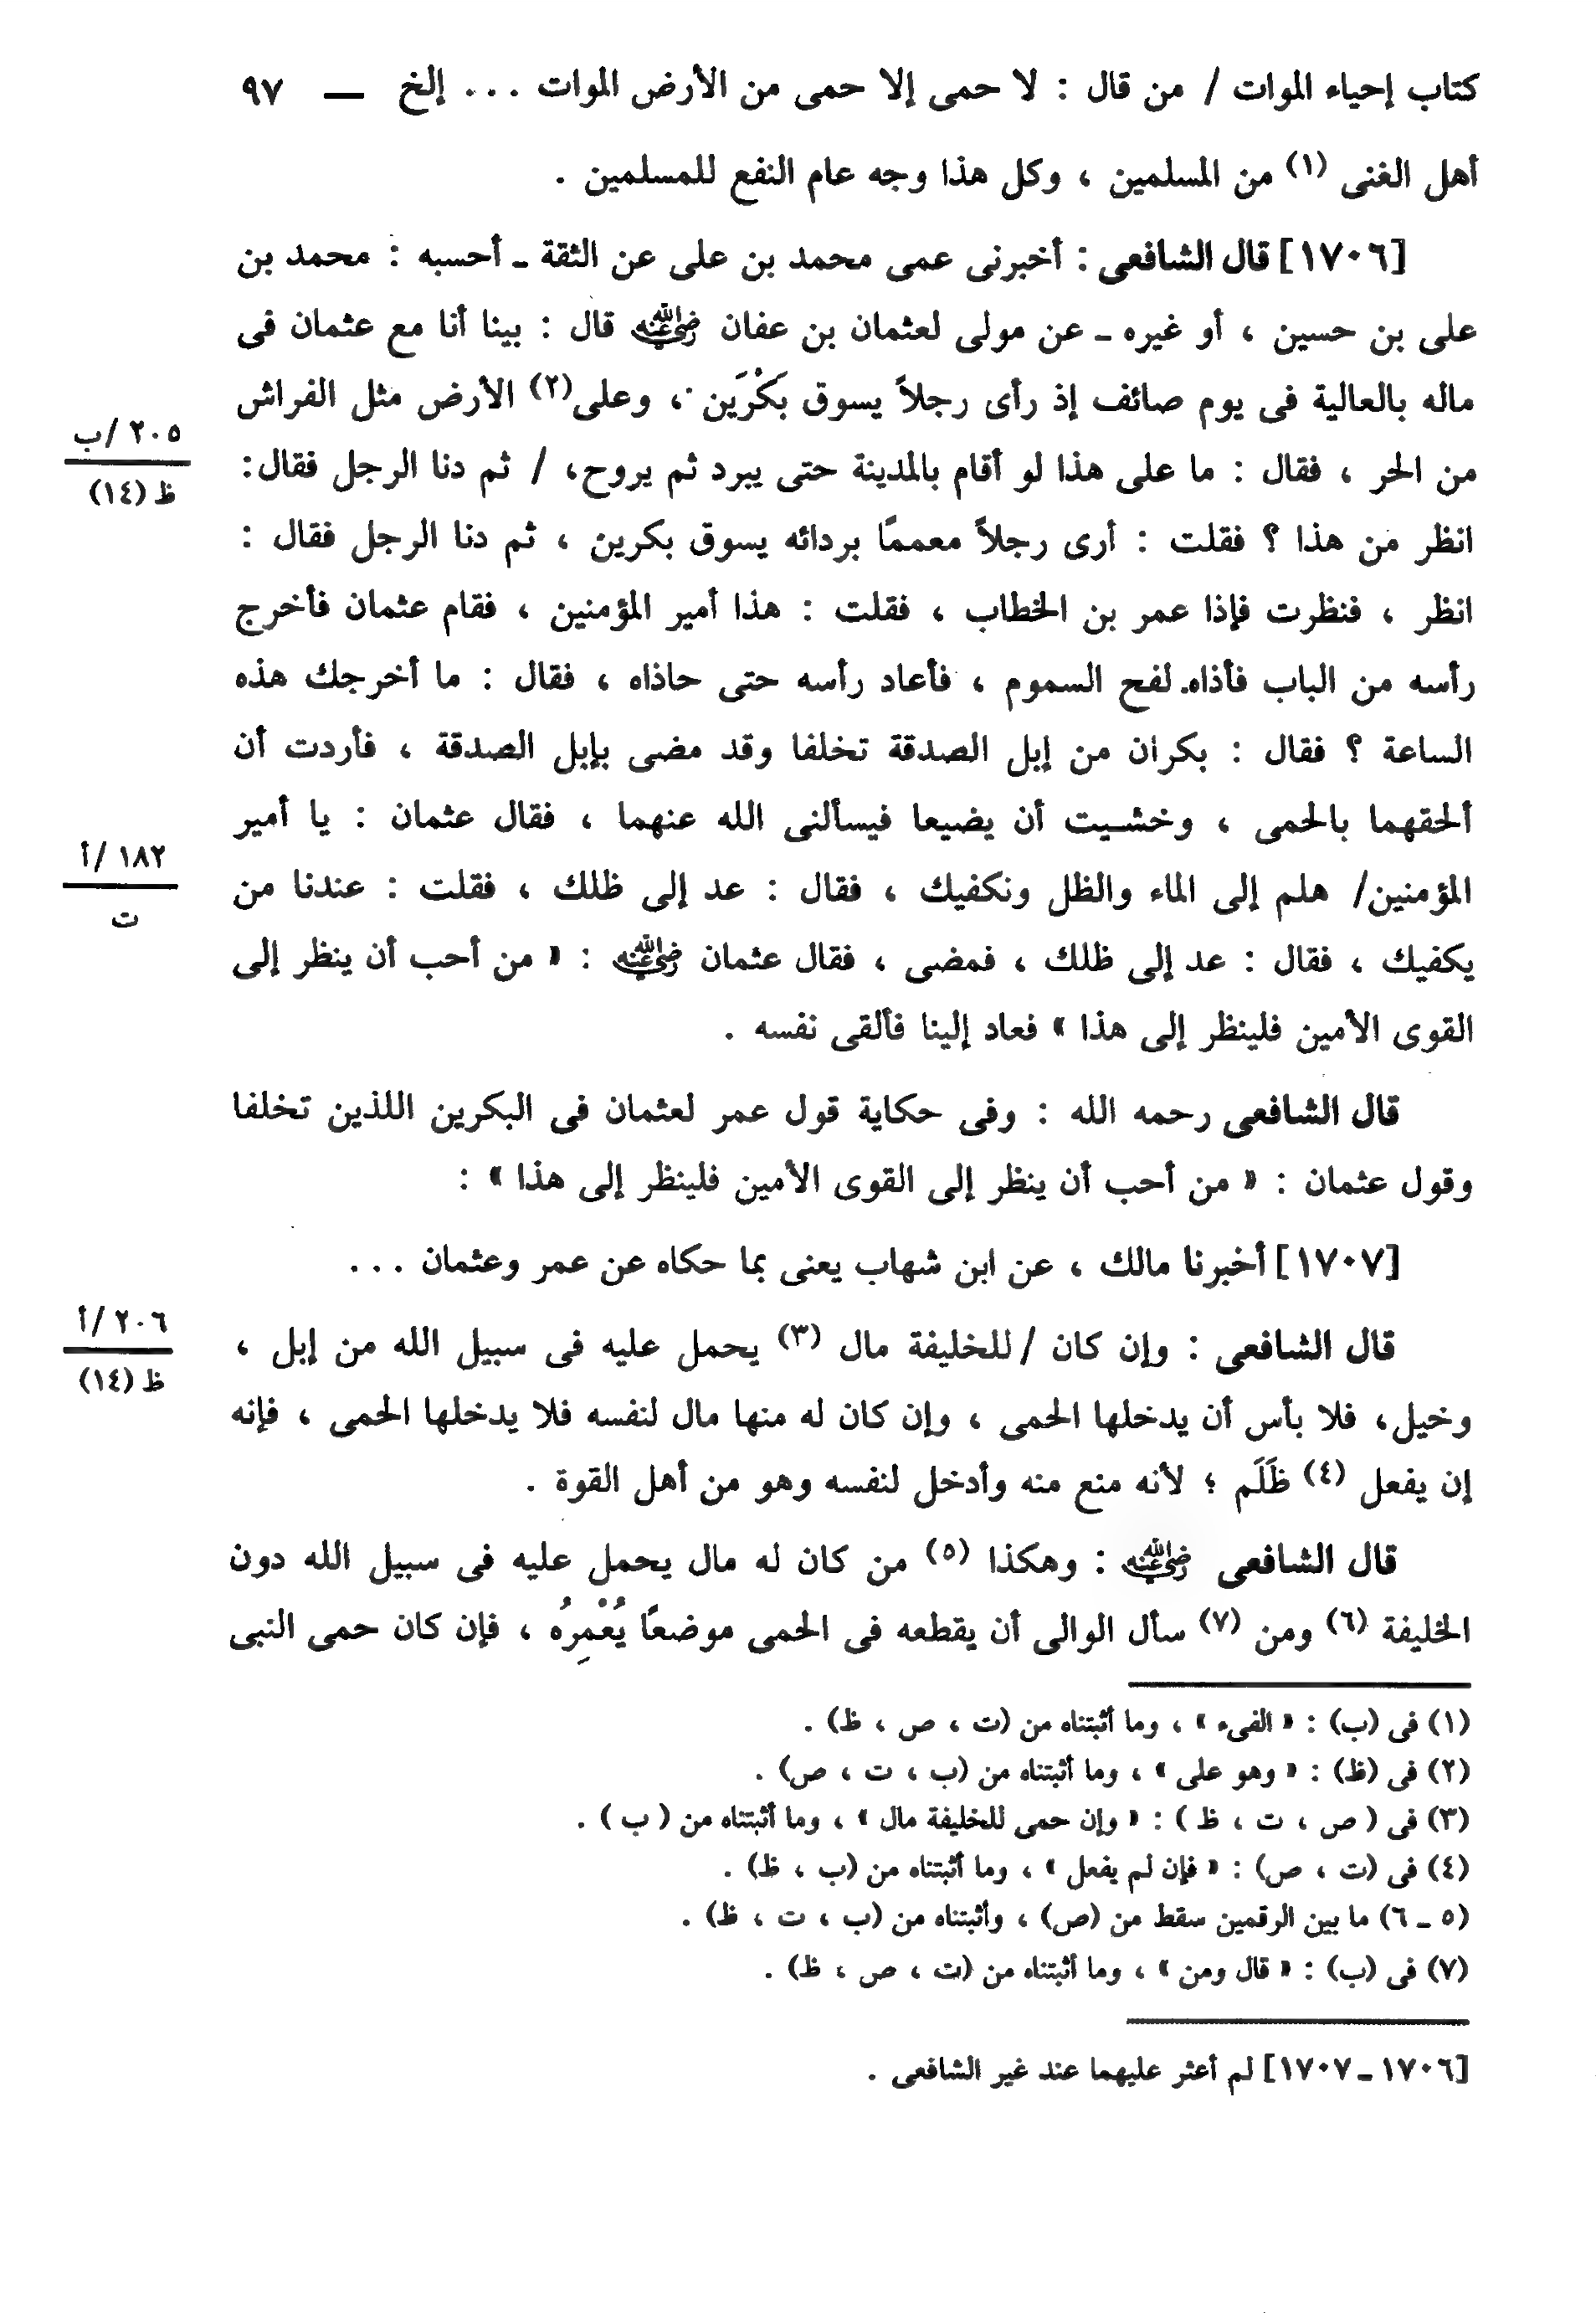 كتاب إحياء الموات / من قال : لا حمى إلا حمى من الأرض الموات ... إلخ — ٩٧
أهل الغنى (١) من المسلمين ، وكل هذا وجه عام النفع للمسلمين .
[١٧٠٦] قال الشافعى : أخبرنى عمى محمد بن على عن الثقة ـ أحسبه : محمد بن
على بن حسين ، أو غيره ـ عن مولى لعثمان بن عفان رضي الله عنه قال : بينا أنا مع عثمان فى
ماله بالعالية فى يوم صائف إذ رأى رجلاً يسوق بَكْرَين ، وعلى(٢) الأرض مثل الفراش
٢٠٥ /ب
من الحر ، فقال : ما على هذا لو أقام بالمدينة حتى يبرد ثم يروح، / ثم دنا الرجل فقال:
ظ (١٤)
انظر من هذا ؟ فقلت : أرى رجلاً معممًا بردائه يسوق بكرين ، ثم دنا الرجل فقال :
انظر ، فنظرت فإذا عمر بن الخطاب ، فقلت : هذا أمير المؤمنين ، فقام عثمان فأخرج
رأسه من الباب فأذاه لفح السموم ، فأعاد رأسه حتى حاذاه ، فقال : ما أخرجك هذه
الساعة ؟ فقال : بكران من إبل الصدقة تخلفا وقد مضى بإبل الصدقة ، فأردت أن
ألحقهما بالحمى ، وخشيت أن يضيعا فيسألنى الله عنهما ، فقال عثمان : يا أمير
١٨٢ /أ
المؤمنين/ هلم إلى الماء والظل ونكفيك ، فقال : عد إلى ظلك ، فقلت : عندنا من
ت
يكفيك ، فقال : عد إلى ظلك ، فمضى ، فقال عثمان رضي الله عنه : « من أحب أن ينظر إلى
القوى الأمين فلينظر إلى هذا » فعاد إلينا فألقى نفسه .
قال الشافعى رحمه الله : وفى حكاية قول عمر لعثمان فى البكرين اللذين تخلفا
وقول عثمان : « من أحب أن ينظر إلى القوى الأمين فلينظر إلى هذا » :
[١٧٠٧] أخبرنا مالك ، عن ابن شهاب يعنى بما حكاه عن عمر وعثمان ...
٢٠٦ /أ
قال الشافعى : وإن كان /للخليفة مال (٣) يحمل عليه فى سبيل الله من إبل ،
ظ (١٤)
وخيل، فلا بأس أن يدخلها الحمى ، وإن كان له منها مال لنفسه فلا يدخلها الحمى ، فإنه
إن يفعل (٤) ظَلَم ؛ لأنه منع منه وأدخل لنفسه وهو من أهل القوة .
قال الشافعى رضي الله عنه : وهكذا (٥) من كان له مال يحمل عليه فى سبيل الله دون
الخليفة (٦) ومن (٧) سأل الوالى أن يقطعه فى الحمى موضعًا يُعْمِرُه ، فإن كان حمى النبى
(١) فى (ب) : « الفىء » ، وما أثبتناه من (ت ، ص ، ظ) .
(٢) فى (ظ) : « وهو على » ، وما أثبتناه من (ب ، ت ، ص) .
(٣) فى ( ص ، ت ، ظ ) : « وإن حمى للخليفة مال » ، وما أثبتناه من ( ب ) .
(٤) فى (ت ، ص) : « فإن لم يفعل » ، وما أثبتناه من (ب ، ظ) .
(٥ ـ ٦) ما بين الرقمين سقط من (ص) ، وأثبتناه من (ب ، ت ، ظ) .
(٧) فى (ب) : « قال ومن » ، وما أثبتناه من (ت ، ص ، ظ) .
[١٧٠٦ ـ ١٧٠٧] لم أعثر عليهما عند غير الشافعى .